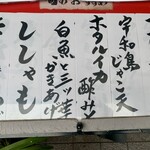 のお
宇和島
じゃこ天
ホタルイカ
酢みそ
白魚と三ッ葉
かきあげ
ししゃも